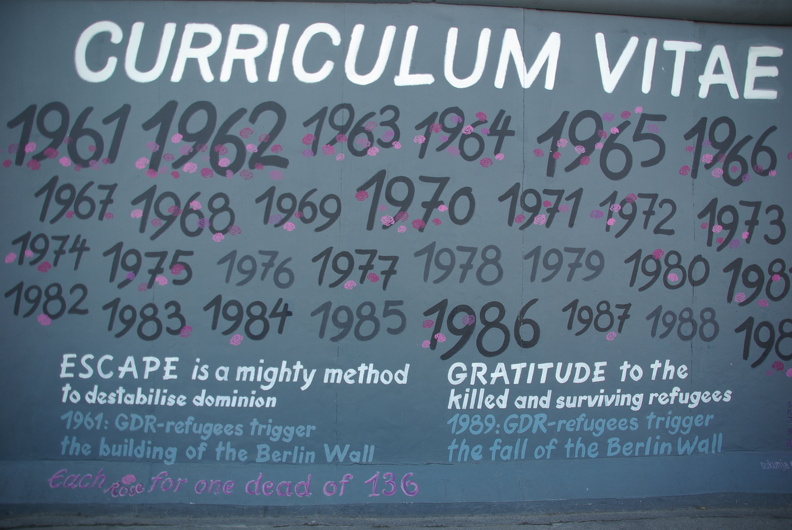 CURRICULUM VITAE
1961 1962 1963 1964 1965 1966
1967 1968 1969 1970 1971 1972 1973
1974 1975 1976 1977 1978 1979 1980 198
1982 1983 1984 1985 1986 1987 1988 198
ESCAPE is a mighty method
to destabilise dominion
1961: GDR-refugees trigger
the building of the Berlin Wall
GRATITUDE to the
killed and surviving refugees
1989: GDR-refugees trigger
the fall of the Berlin Wall
Each rose for one dead of 136